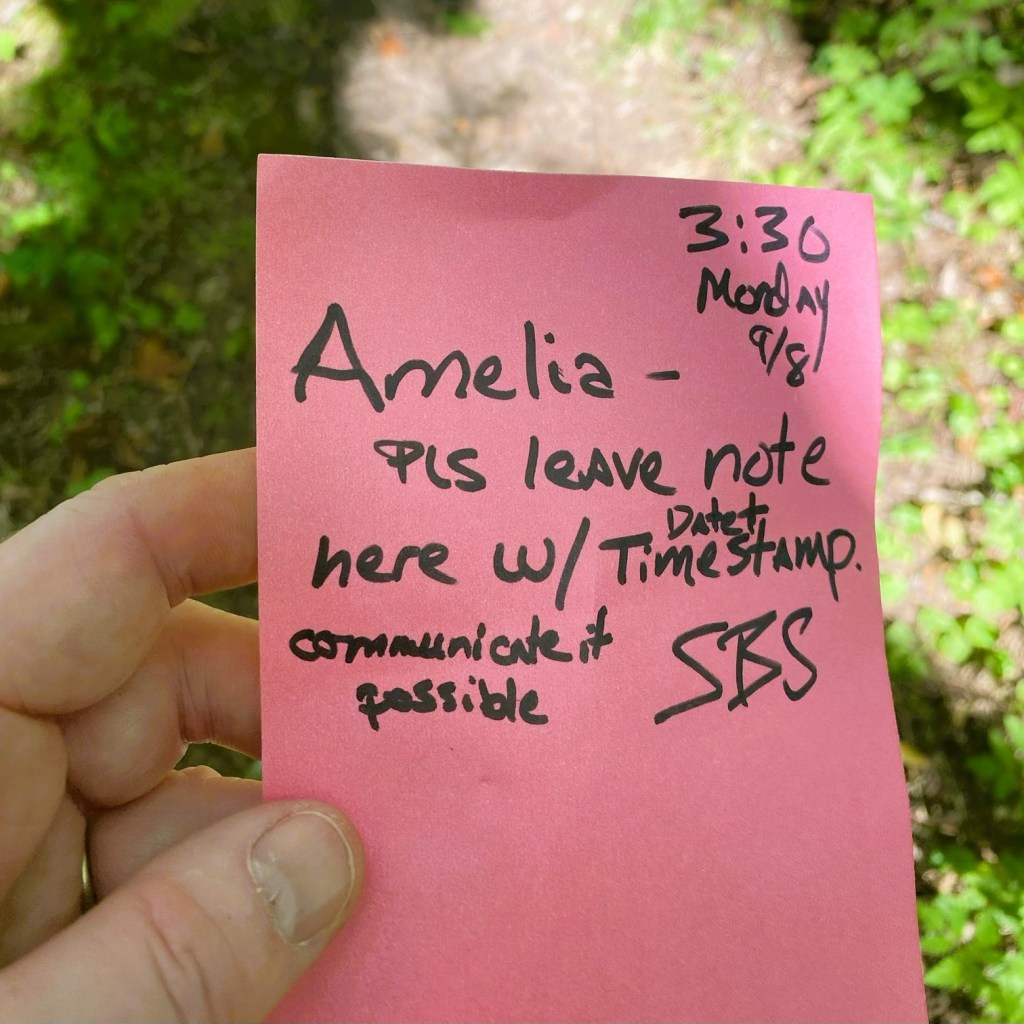 3:30
Monday
9/8
Amelia -
Pls leave note
here w/ Date +
Timestamp.
communicate if
possible
SBS